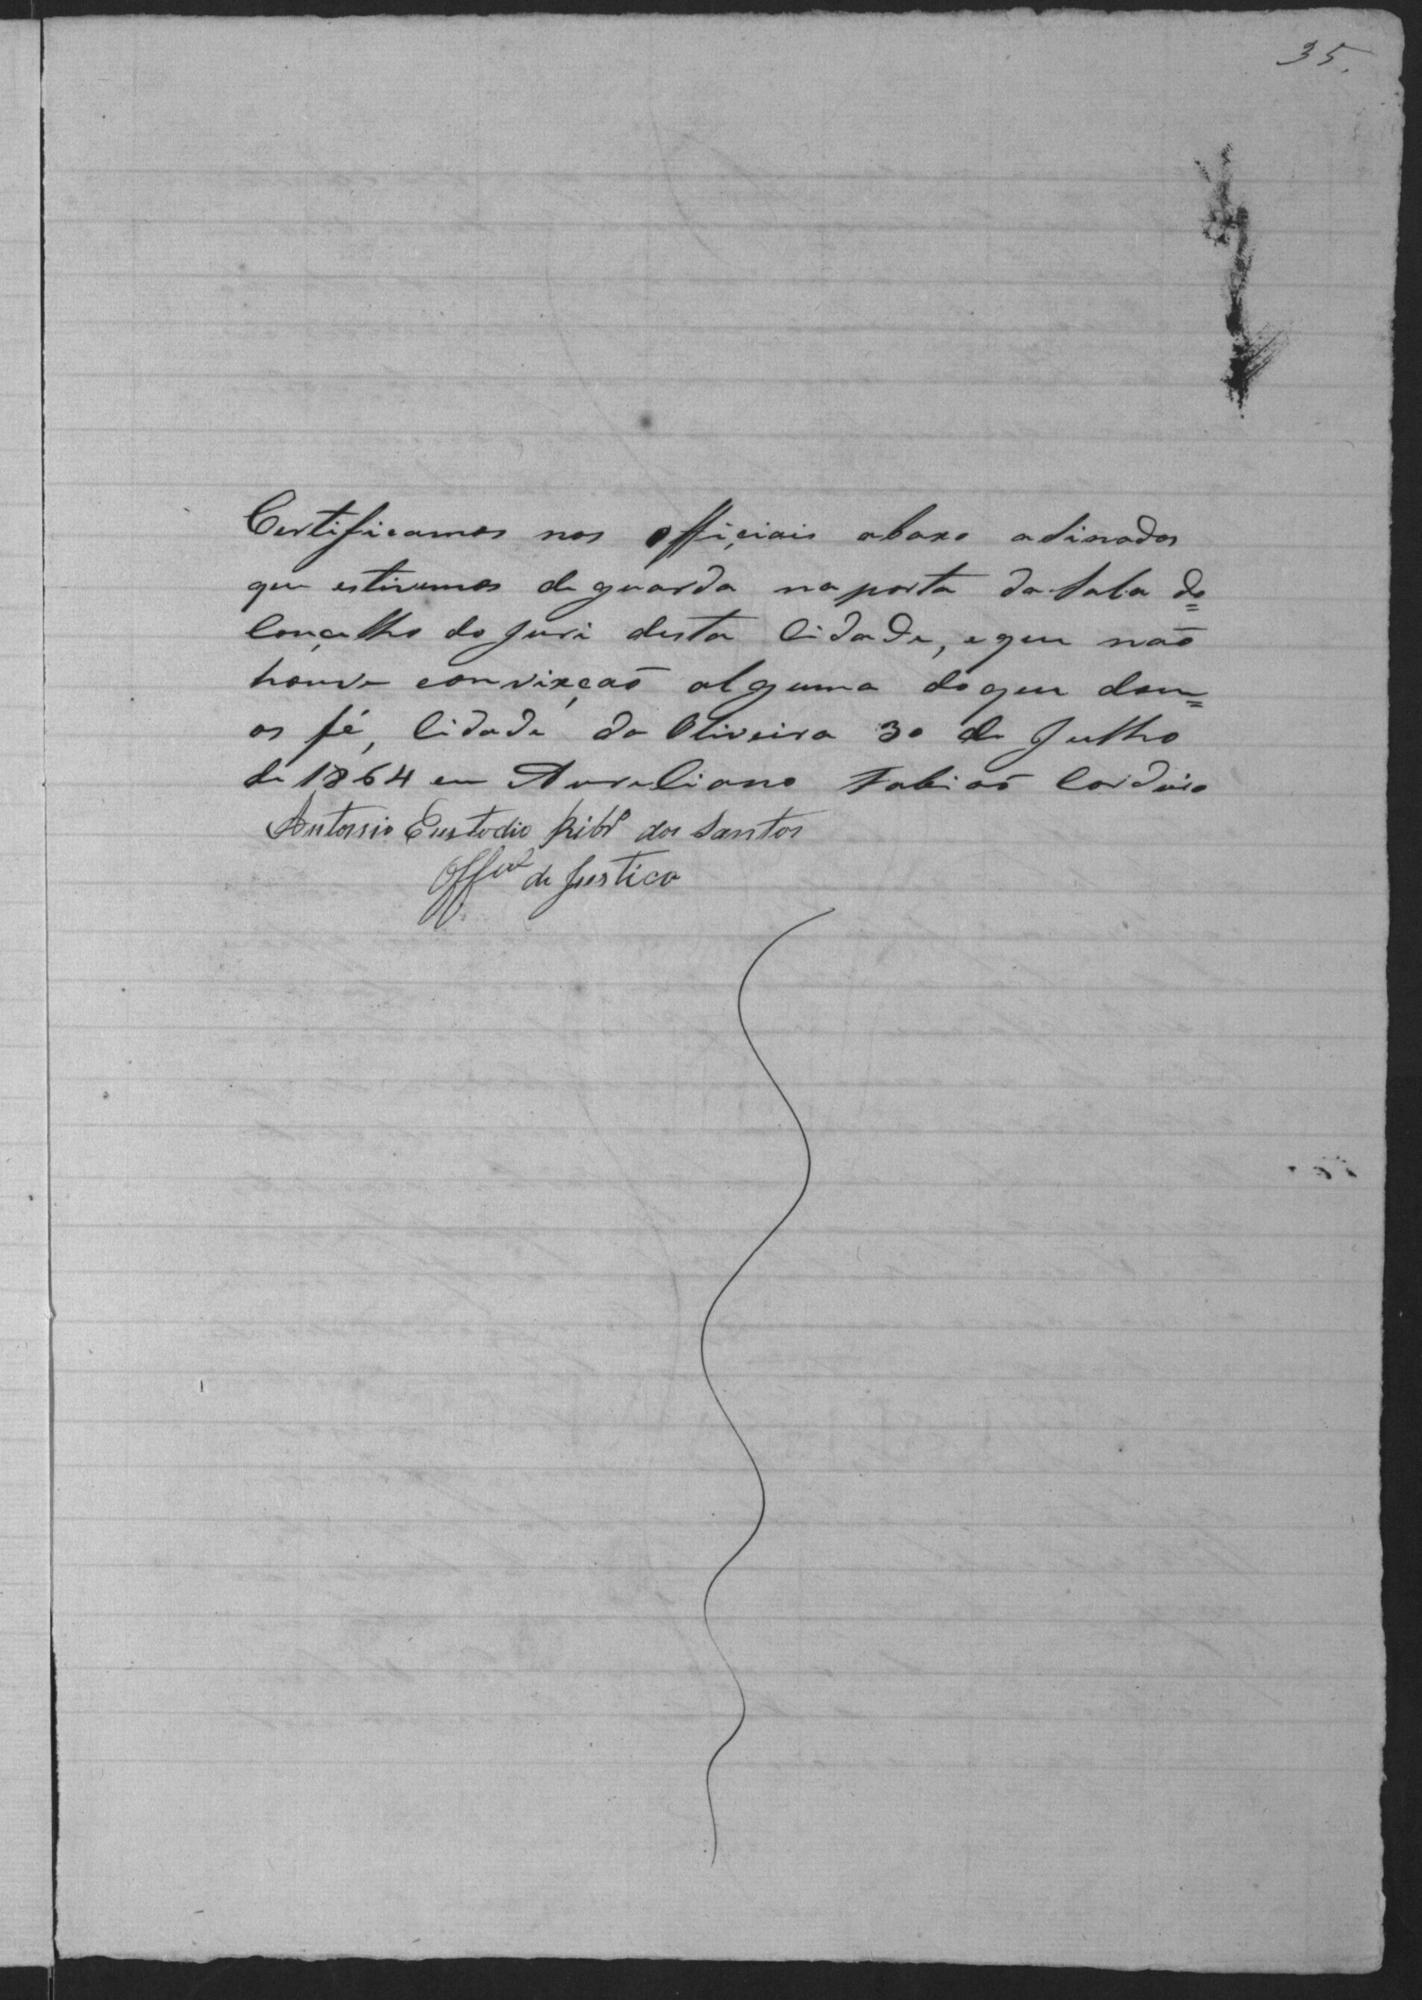 35.
Certificamos nos officiais abaxo asinados
que estivemos de guarda na porta da Sala do=
Conçelho do Juri desta Cidade, e que naõ
houve convixçaõ alguma do que dam=
os fé, Cidade da Oliveira 30 de Julho
de 1864 eu Aureliano Fabiaõ Cordeiro
Antonio Custodio Ribr.o dos Santos
Offal de Justica